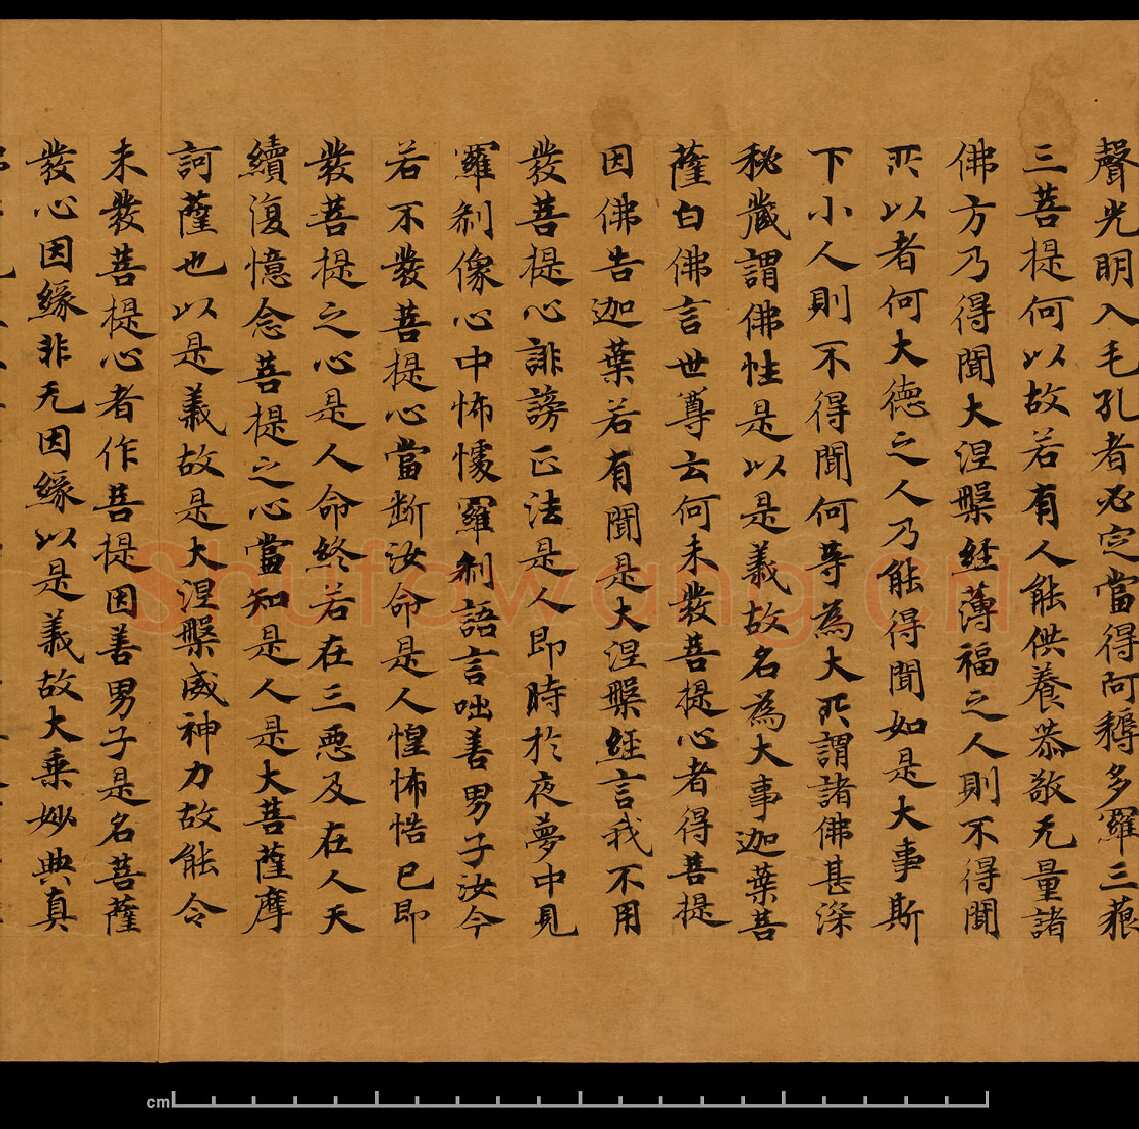 聲光明入毛孔者必定當得阿耨多羅三藐
三菩提何以故若有人能供養恭敬无量諸
佛方乃得聞大涅槃經薄福之人則不得聞
所以者何大德之人乃能得聞如是大事斯
下小人則不得聞何等為大所謂諸佛甚深
秘蔵謂佛性是以是義故名為大事迦葉菩
薩白佛言世尊云何未發菩提心者得菩提
因佛告迦葉若有聞是大涅槃經言我不用
發菩提心誹謗正法是人即時於夜夢中見
羅剎像心中怖懅羅剎語言咄善男子汝今
若不發菩提心當断汝命是人惶怖悟已即
發菩提之心是人命終若在三惡及在人天
續復憶念菩提之心當知是人是大菩薩摩
訶薩也以是義故是大涅槃威神力故能令
未發菩提心者作菩提因善男子是名菩薩
發心因緣非无因緣以是義故大乘妙典真
Shufawang.cn
cm